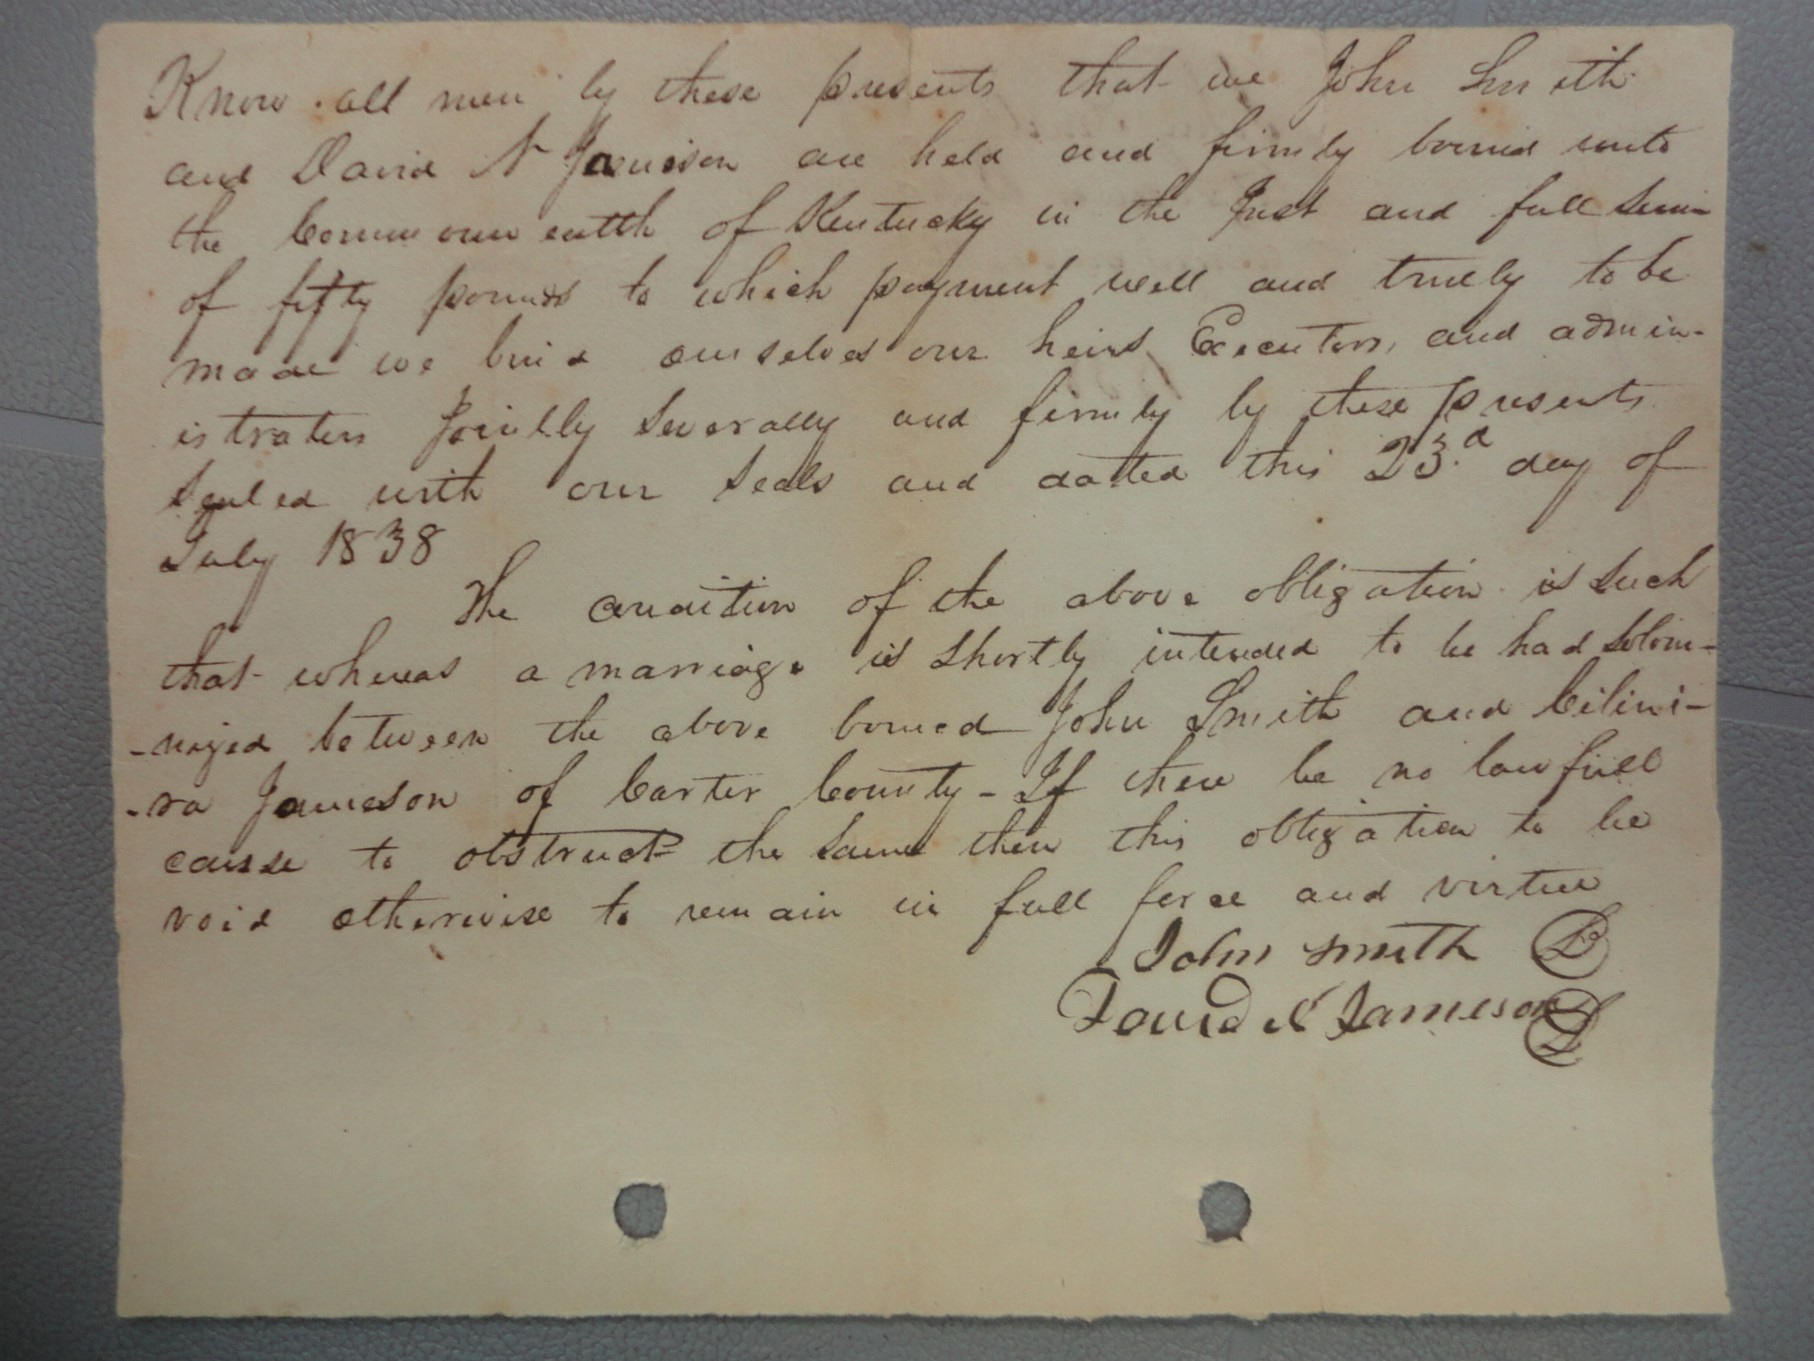 Know all men by these presents that we John Smith
and David N Jameson are held and firmly bound unto
the Commonwealth of Kentucky in the Just and full sum
of fifty pounds to which payment well and truely to be
made we bind ourselves our heirs Executors, and admin-
istrators Jointly Severally and firmly by these presents
Sealed with our Seals and dated this 23.d day of
July 1838
The condition of the above obligation is such
that whereas a marriage is shortly intended to be had solem-
-nized between the above bound John Smith and Cilini-
-ra Jameson of Carter County - If there be no lawfull
cause to obstruct the same then this obligation to be
void otherwise to remain in full force and virtue
John Smith
David N Jameson